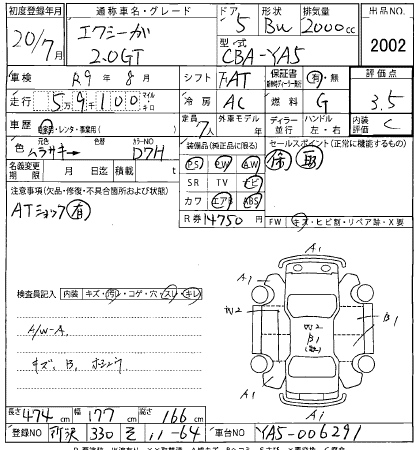 初度登録年月 通称車名・グレード ドア 形状 排気量 出品NO.
20/7月 エクシーガ 2.0GT 5 BW 2000cc 2002
型式 CBA-YA5
車検 R9年 8月 シフト FAT 保証書 有・無 評価点
走行 5万9千100 マイル キロ 冷房 AC 燃料 G 3.5
車歴 自家用・レンタ・事業用( ) 定員 7人 外車モデル 年 ディーラー 並行 ハンドル 左・右 内装評価 C
色 元色 ムラサキ→ 色替 カラーNO D7H 装備品(純正品に限る) セールスポイント(正常に機能するもの)
名義変更期限 月 日迄 積載 t PS PW AW 禰 取
注意事項(欠品・修復・不具合箇所および状態) SR TV ナビ
ATショック有 カワ エアB ABS
R券 14750円 FW キズ・ヒビ割・リペア跡・X要
A1
検査員記入 内装 キズ・汚レ・コゲ・穴・スレ・キレ A1 A1
A/W-A W2 W2 B1
キズ、B、ホシュウ B1
A1 A1
A1
長さ 474cm 幅 177cm 高さ 166cm
登録NO 所沢 330 そ 11-64 車台NO YA5-006291